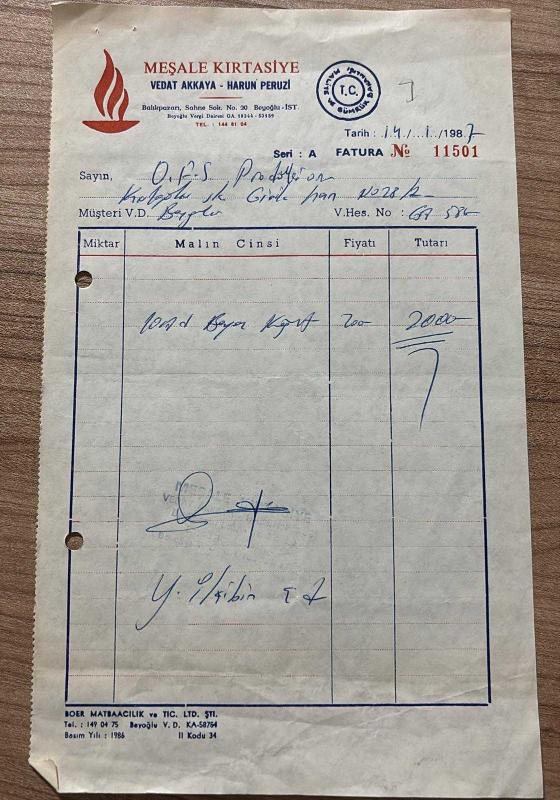 MEŞALE KIRTASİYE
VEDAT AKKAYA - HARUN PERUZİ
Balıkpazarı, Sahne Sok. No. 20 Beyoğlu-İST.
Beyoğlu Vergi Dairesi GA 18344-53159
TEL. : 144 81 04
T.C.
MALİYE VE GÜMRÜK BAKANLIĞI
Tarih : 14 / 1 / 1987
Seri : A FATURA No 11501
Sayın, O.F.S Prodüksiyon
han No 28/2
Müşteri V.D. Beyoğlu V.Hes. No :
Miktar Malın Cinsi Fiyatı Tutarı
Beyaz 200 2000
MEŞALE
Y. İkibin
BOER MATBAACILIK ve TİC. LTD. ŞTİ.
Tel. : 149 04 75 Beyoğlu V. D. KA-58764
Basım Yılı : 1986 İl Kodu 34